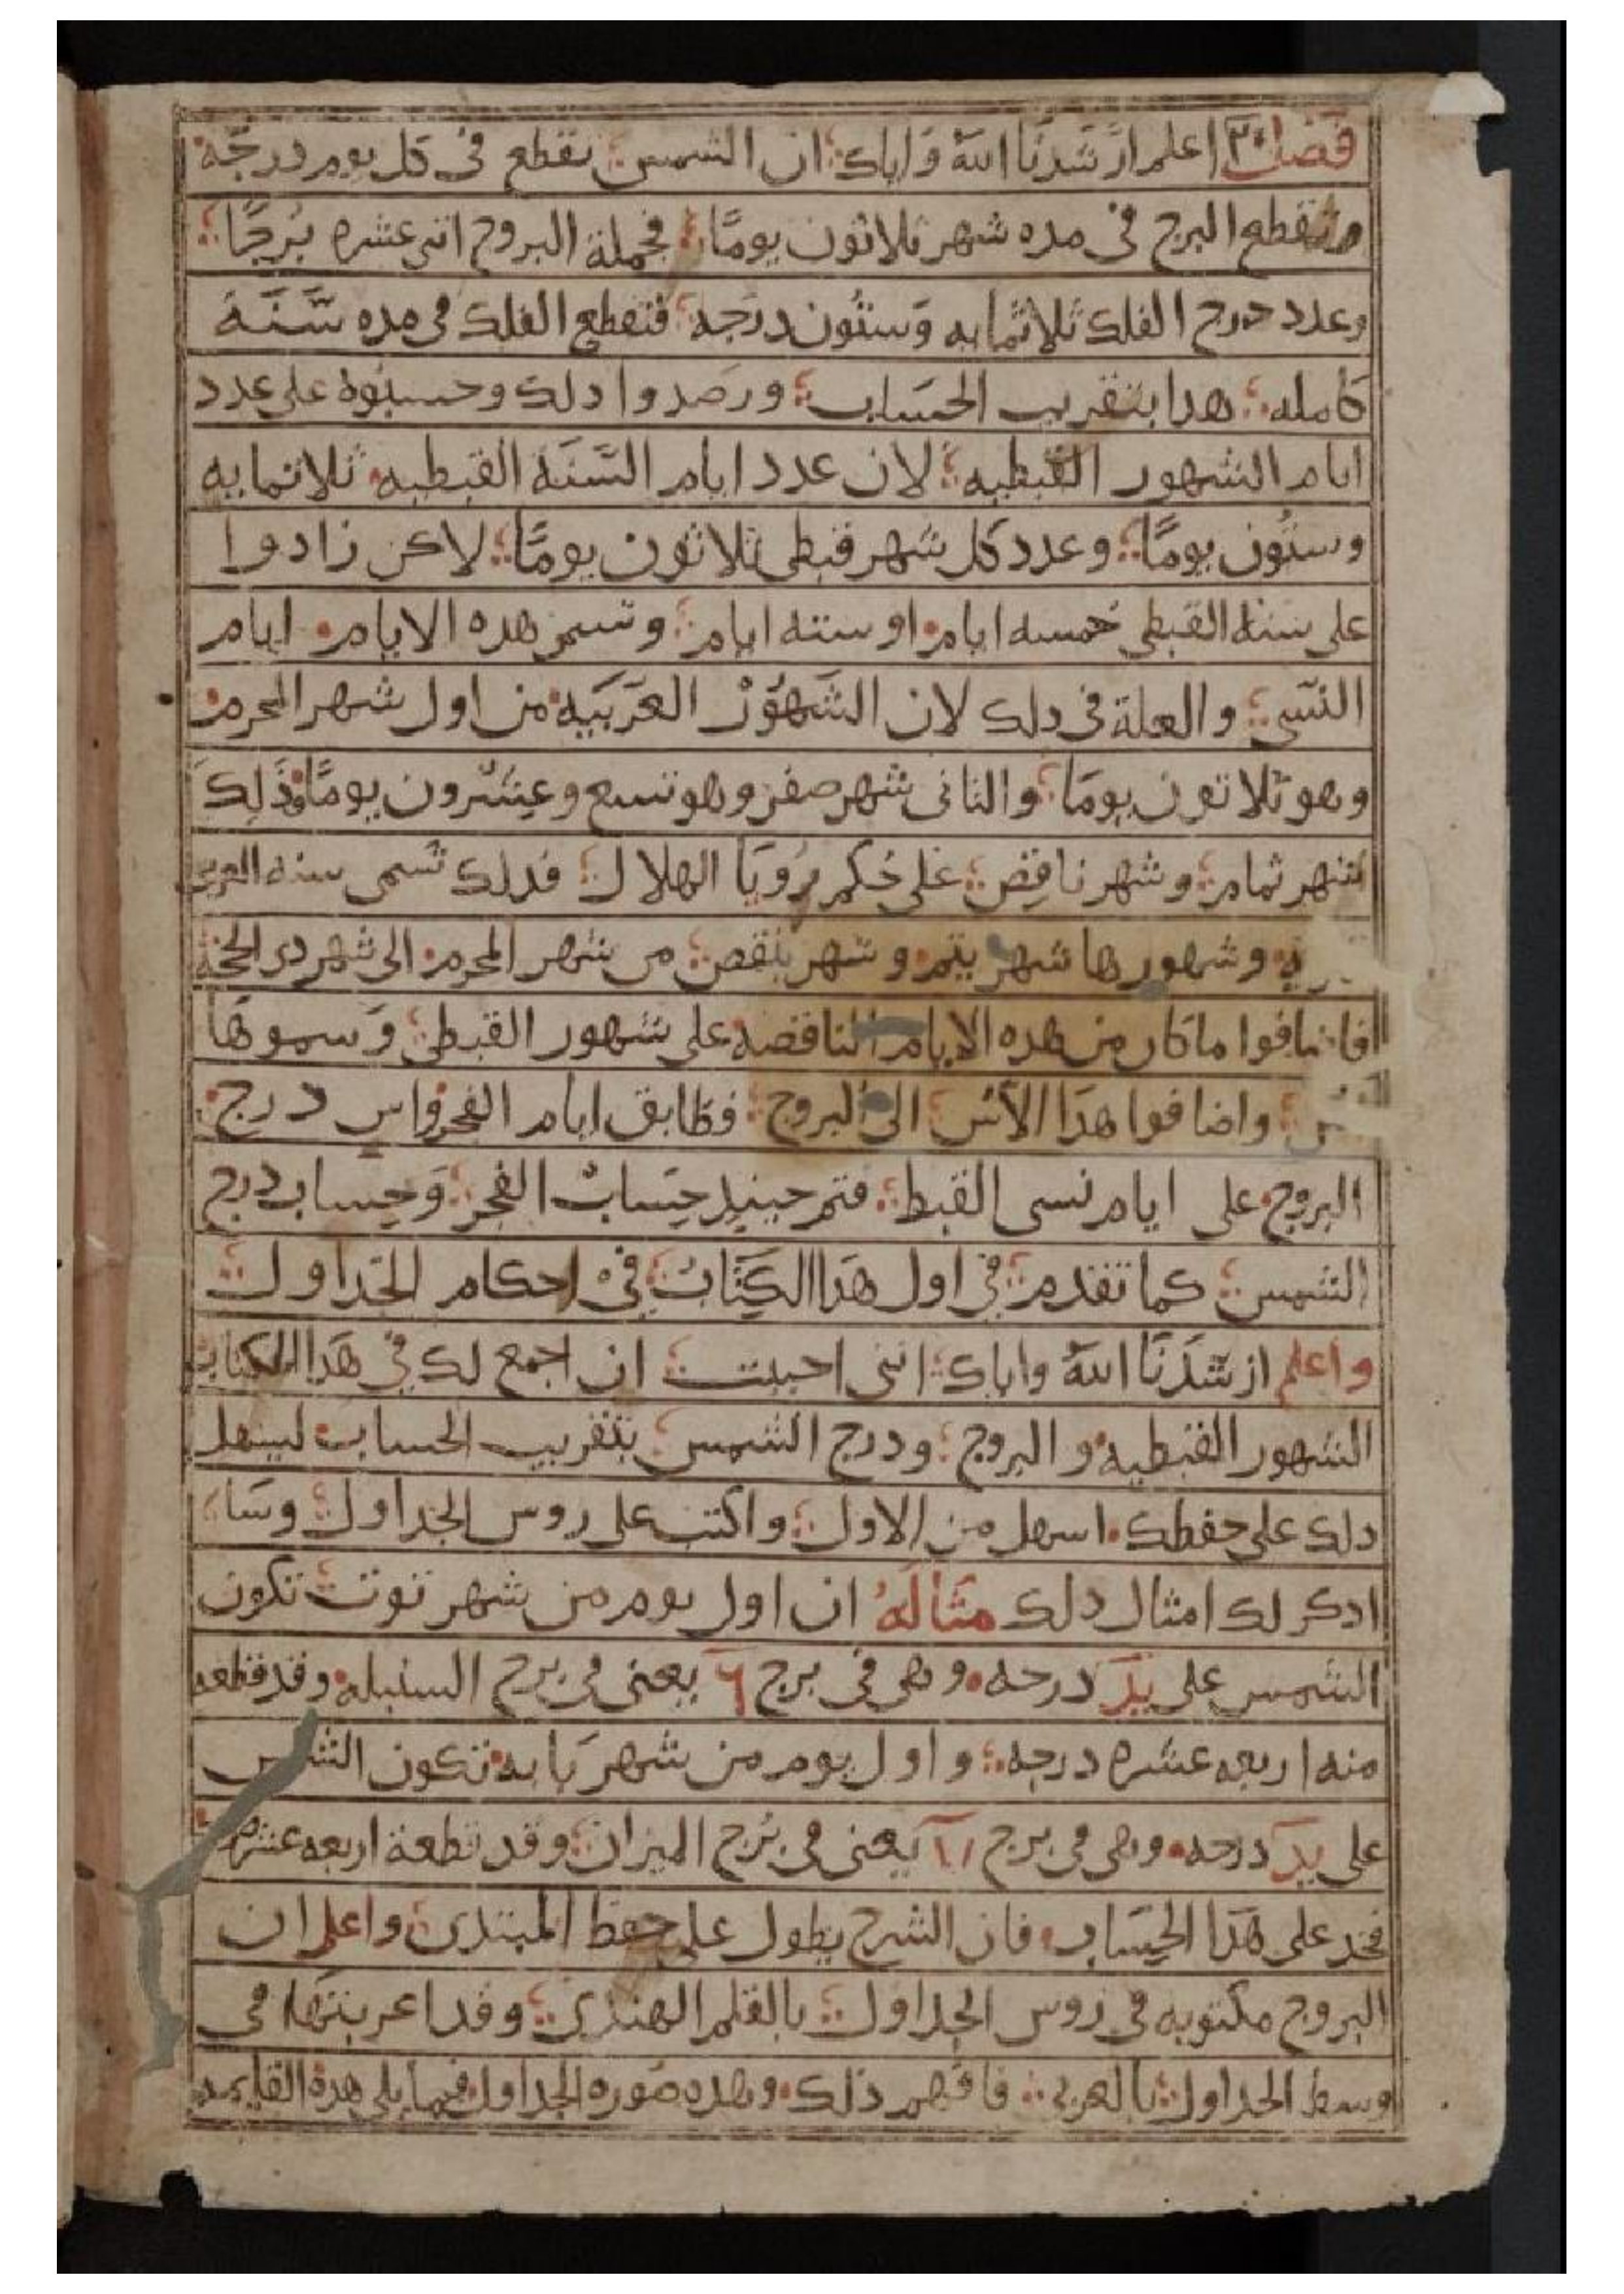 فصل ٢٠ اعلم ارشدنا الله واياك ان الشمس تقطع فى كل يوم درجة
وتقطع البرج فى مده شهر ثلاثون يومًا فجملة البروج اثنى عشره بُرجًا
وعدد درج الفلك ثلاثمايه وستُون درجه فتقطع الفلك فى مده سَّنَة
كامله هدا بتقريب الحسَاب ورصدوا دلك وحسبُوه على عدد
ايام الشهور القبطيه لان عدد ايام السَّنَة القبطيه ثلاثمايه
وستُون يومًا وعدد كل شهر قبطى ثلاثون يومًا لاكن زادوا
على سنة القبطى خمسه ايام او سته ايام وتسمى هده الايام ايام
النسى والعلة فى دلك لان الشهور العَرَبَيه من اول شهر المحرم
وهو ثلاثون يومَا والثانى شهر صفر وهو تسع وعِشرون يومًا وذَلِكَ
شهر تمام وشهر ناقِص على حُكم رُويَا الهلال فدلك تُسمى سنه العرب
وشهورها شهر يتم وشهر ينقص من شهر المحرم الى شهر دى الحجة
فاضافوا ما كان من هده الايام الناقصه على شهور القبطى وَسموهَا
واضافوا هدا الاس الى البروج فطابق ايام الفجر واس درج
البروج على ايام نسى القبط فتم حينيدٍ حِسَابُ الفجر وَحِساب درج
الشمس كما تقدم فى اول هَدا الكِتَاب فى احكام الجَداول
واعلم ارشَدَنَا اللهُ واياك اننى احببت ان اجمع لك فى هَدا الكتاب
الشهور القبطيه والبروج ودرج الشمس بتقريب الحساب ليسهل
دلك على حفظك اسهل من الاول واكتب على روس الجداول وسَا
ادكر لك امثال دلك مثالهُ ان اول يوم من شهر توت تكون
الشمس على يد درجه وهى فى برج ٦ يعنى فى برج السنبله وقد قطعه
منه اربعه عشره درجه واول يوم من شهر بَابه تكون الشمس
على يد درجه وهى فى برج ٧ يعنى فى بُرج الميزان وقد قطعة اربعه عشره
فخد على هَدا الحِسَاب فان الشرح يطول على حفظ المبتدى واعلم ان
البروج مكتوبه فى روس الجداول بالقلم الهندى وقد اعربتهَا فى
وسط الجداول بالعربى فافهم ذلك وهده صُوره الجداول فيما يلى هدة القايمه